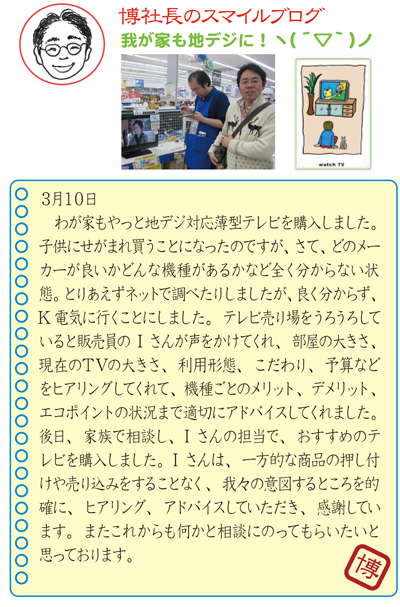 博社長のスマイルブログ
我が家も地デジに！ヽ(´▽`)ノ
watch TV
3月10日
わが家もやっと地デジ対応薄型テレビを購入しました。
子供にせがまれ買うことになったのですが、さて、どのメー
カーが良いかどんな機種があるかなど全く分からない状
態。とりあえずネットで調べたりしましたが、良く分からず、
K電気に行くことにしました。テレビ売り場をうろうろして
いると販売員のIさんが声をかけてくれ、部屋の大きさ、
現在のTVの大きさ、利用形態、こだわり、予算など
をヒアリングしてくれて、機種ごとのメリット、デメリット、
エコポイントの状況まで適切にアドバイスしてくれました。
後日、家族で相談し、Iさんの担当で、おすすめのテ
レビを購入しました。Iさんは、一方的な商品の押し付
けや売り込みをすることなく、我々の意図するところを的
確に、ヒアリング、アドバイスしていただき、感謝してい
ます。またこれからも何かと相談にのってもらいたいと
思っております。
博